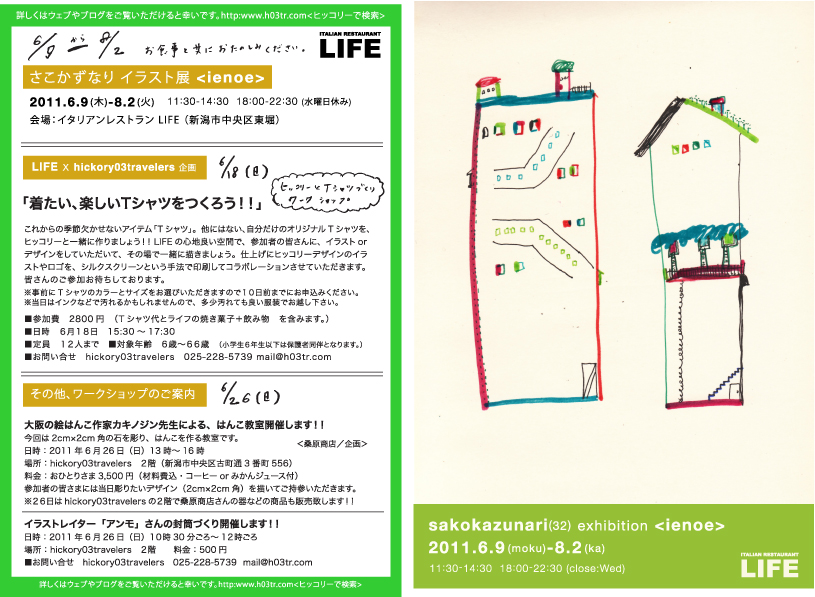 詳しくはウェブやブログをご覧いただけると幸いです。http:www.h03tr.com<ヒッコリーで検索>
6/9から8/2 お食事と共におたのしみください。
ITALIAN RESTAURANT
LIFE
さこかずなり イラスト展 <ienoe>
2011.6.9(木)-8.2(火) 11:30-14:30 18:00-22:30 (水曜日休み)
会場：イタリアンレストラン LIFE（新潟市中央区東堀）
LIFE X hickory03travelers 企画
6/18(日)
ヒッコリーとTシャツづくり
ワークショップ
「着たい、楽しいTシャツをつくろう！！」
これからの季節欠かせないアイテム「Tシャツ」。他にはない、自分だけのオリジナルTシャツを、
ヒッコリーと一緒に作りましょう！！LIFEの心地良い空間で、参加者の皆さんに、イラスト or
デザインをしていただいて、その場で一緒に描きましょう。仕上げにヒッコリーデザインのイラ
ストやロゴを、シルクスクリーンという手法で印刷してコラボレーションさせていただきます。
皆さんのご参加お待ちしております。
※事前にTシャツのカラーとサイズをお選びいただきますので10日前までにお申込みください。
※当日はインクなどで汚れるかもしれませんので、多少汚れても良い服装でお越し下さい。
■参加費 2800円 （Tシャツ代とライフの焼き菓子＋飲み物 を含みます。）
■日時 6月18日 15:30～17:30
■定員 12人まで ■対象年齢 6歳～66歳 （小学生6年生以下は保護者同伴となります。）
■お問い合せ hickory03travelers 025-228-5739 mail@h03tr.com
その他、ワークショップのご案内
6/26(日)
大阪の絵はんこ作家カキノジン先生による、はんこ教室開催します！！
今回は2cm×2cm角の石を彫り、はんこを作る教室です。
<桑原商店／企画>
日時：2011年6月26日（日）13時～16時
場所：hickory03travelers 2階（新潟市中央区古町通3番町556）
料金：おひとりさま3,500円（材料費込・コーヒー or みかんジュース付）
参加者の皆さまには当日彫りたいデザイン（2cm×2cm角）を描いてご持参いただきます。
※26日はhickory03travelersの2階で桑原商店さんの器などの商品も販売致します！！
イラストレイター「アンモ」さんの封筒づくり開催します！！
日時：2011年6月26日（日）10時30分ごろ～12時ごろ
場所：hickory03travelers 2階 料金：500円
■お問い合せ hickory03travelers 025-228-5739 mail@h03tr.com
詳しくはウェブやブログをご覧いただけると幸いです。http:www.h03tr.com<ヒッコリーで検索>
sakokazunari(32) exhibition <ienoe>
2011.6.9(moku)-8.2(ka)
11:30-14:30 18:00-22:30 (close:Wed)
ITALIAN RESTAURANT
LIFE